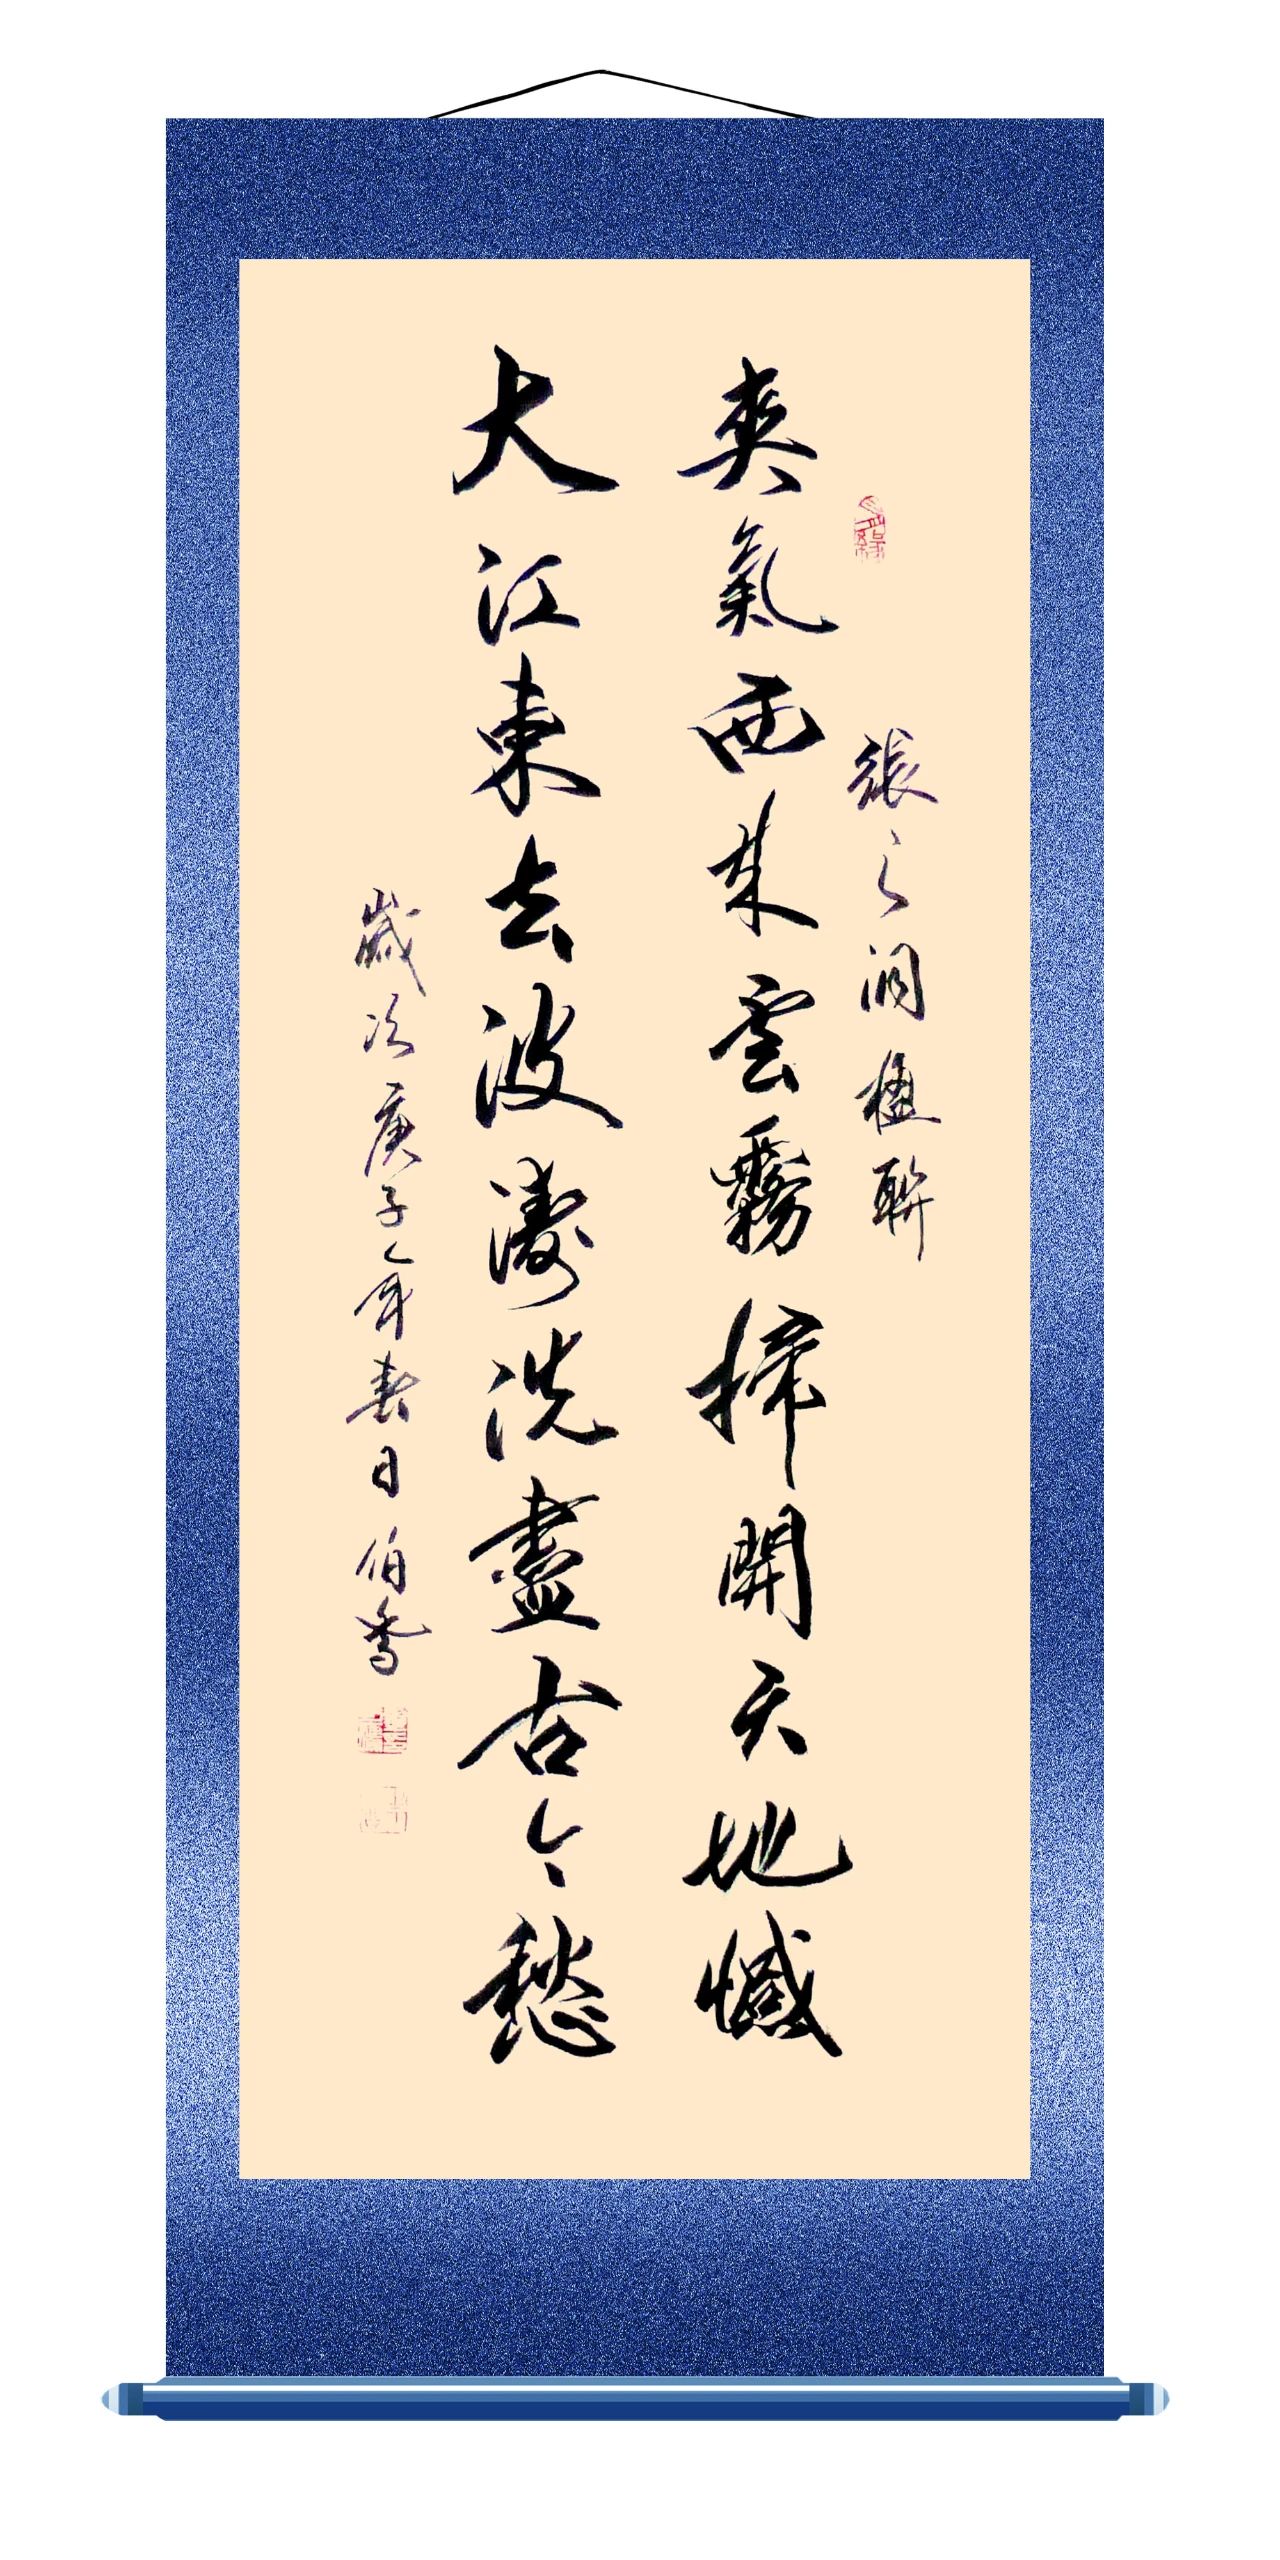 張之洞楹聯
爽氣西來雲霧掃開天地憾
大江東去波濤洗盡古今愁
歲次庚子年春日伯喬